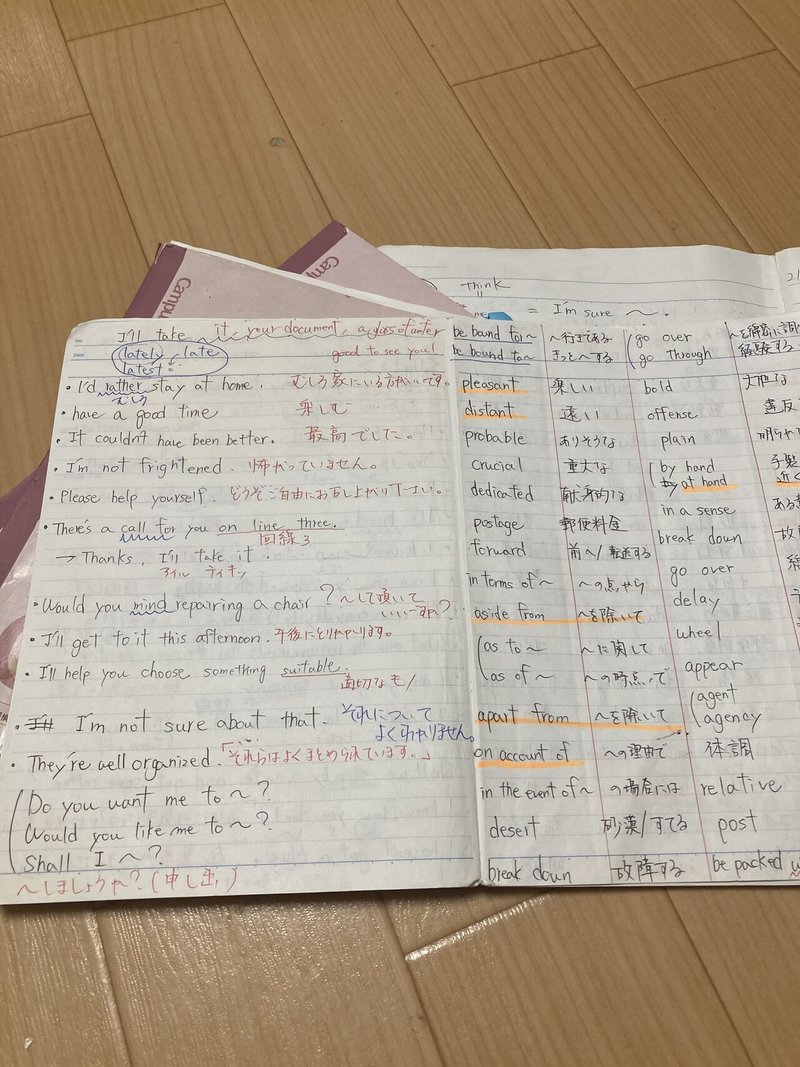 Campus
Campu
Think
= I'm sure ～.
No.
Date
I'll take it, your document, a glass of water
lately, late
latest =
good to see you!
・I'd rather stay at home. むしろ家にいる方がいいです。
むしろ
・have a good time 楽しむ
・It couldn't have been better. 最高でした。
・I'm not frightened. 怖がっていません。
・Please help yourself. どうぞご自由にお召し上がり下さい。
・There's a call for you on line three.
回線3
→ Thanks, I'll take it.
アイル テイキッ
・Would you mind repairing a chair? ～して頂いていいですか?
・I'll get to it this afternoon. 午後にとりかかります。
・I'll help you choose something suitable.
適切なもの
・I'm not sure about that. それについてよくわかりません。
・They're well organized.「それらはよくまとめられています。」
Do you want me to ～?
Would you like me to ～?
Shall I ～?
～しましょうか?(申し出)
be bound for～ ～行きである
be bound to～ きっと～する
pleasant 楽しい
distant 遠い
probable ありそうな
crucial 重大な
dedicated 献身的な
postage 郵便料金
forward 前へ/転送する
in terms of～ ～の点から
aside from ～を除いて
as to～ ～に関して
as of～ ～の時点で
apart from ～を除いて
on account of ～の理由で
in the event of～ の場合には
desert 砂漠/すてる
break down 故障する
go over ～を綿密に調
go through 経験する
bold 大胆な
offense 違反
plain 明らか
by hand 手製
at hand 近く
in a sense ある意
break down 故
go over
delay
wheel
appear
agent
agency
体調
relative
post
be packed w